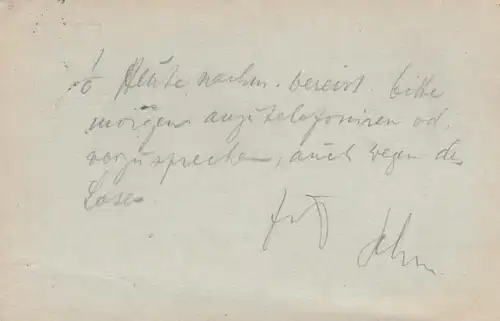 Heute nachm. bereist. bitte
morgen anzutelefoniren od.
vorzusprechen, auch wegen des
Loses